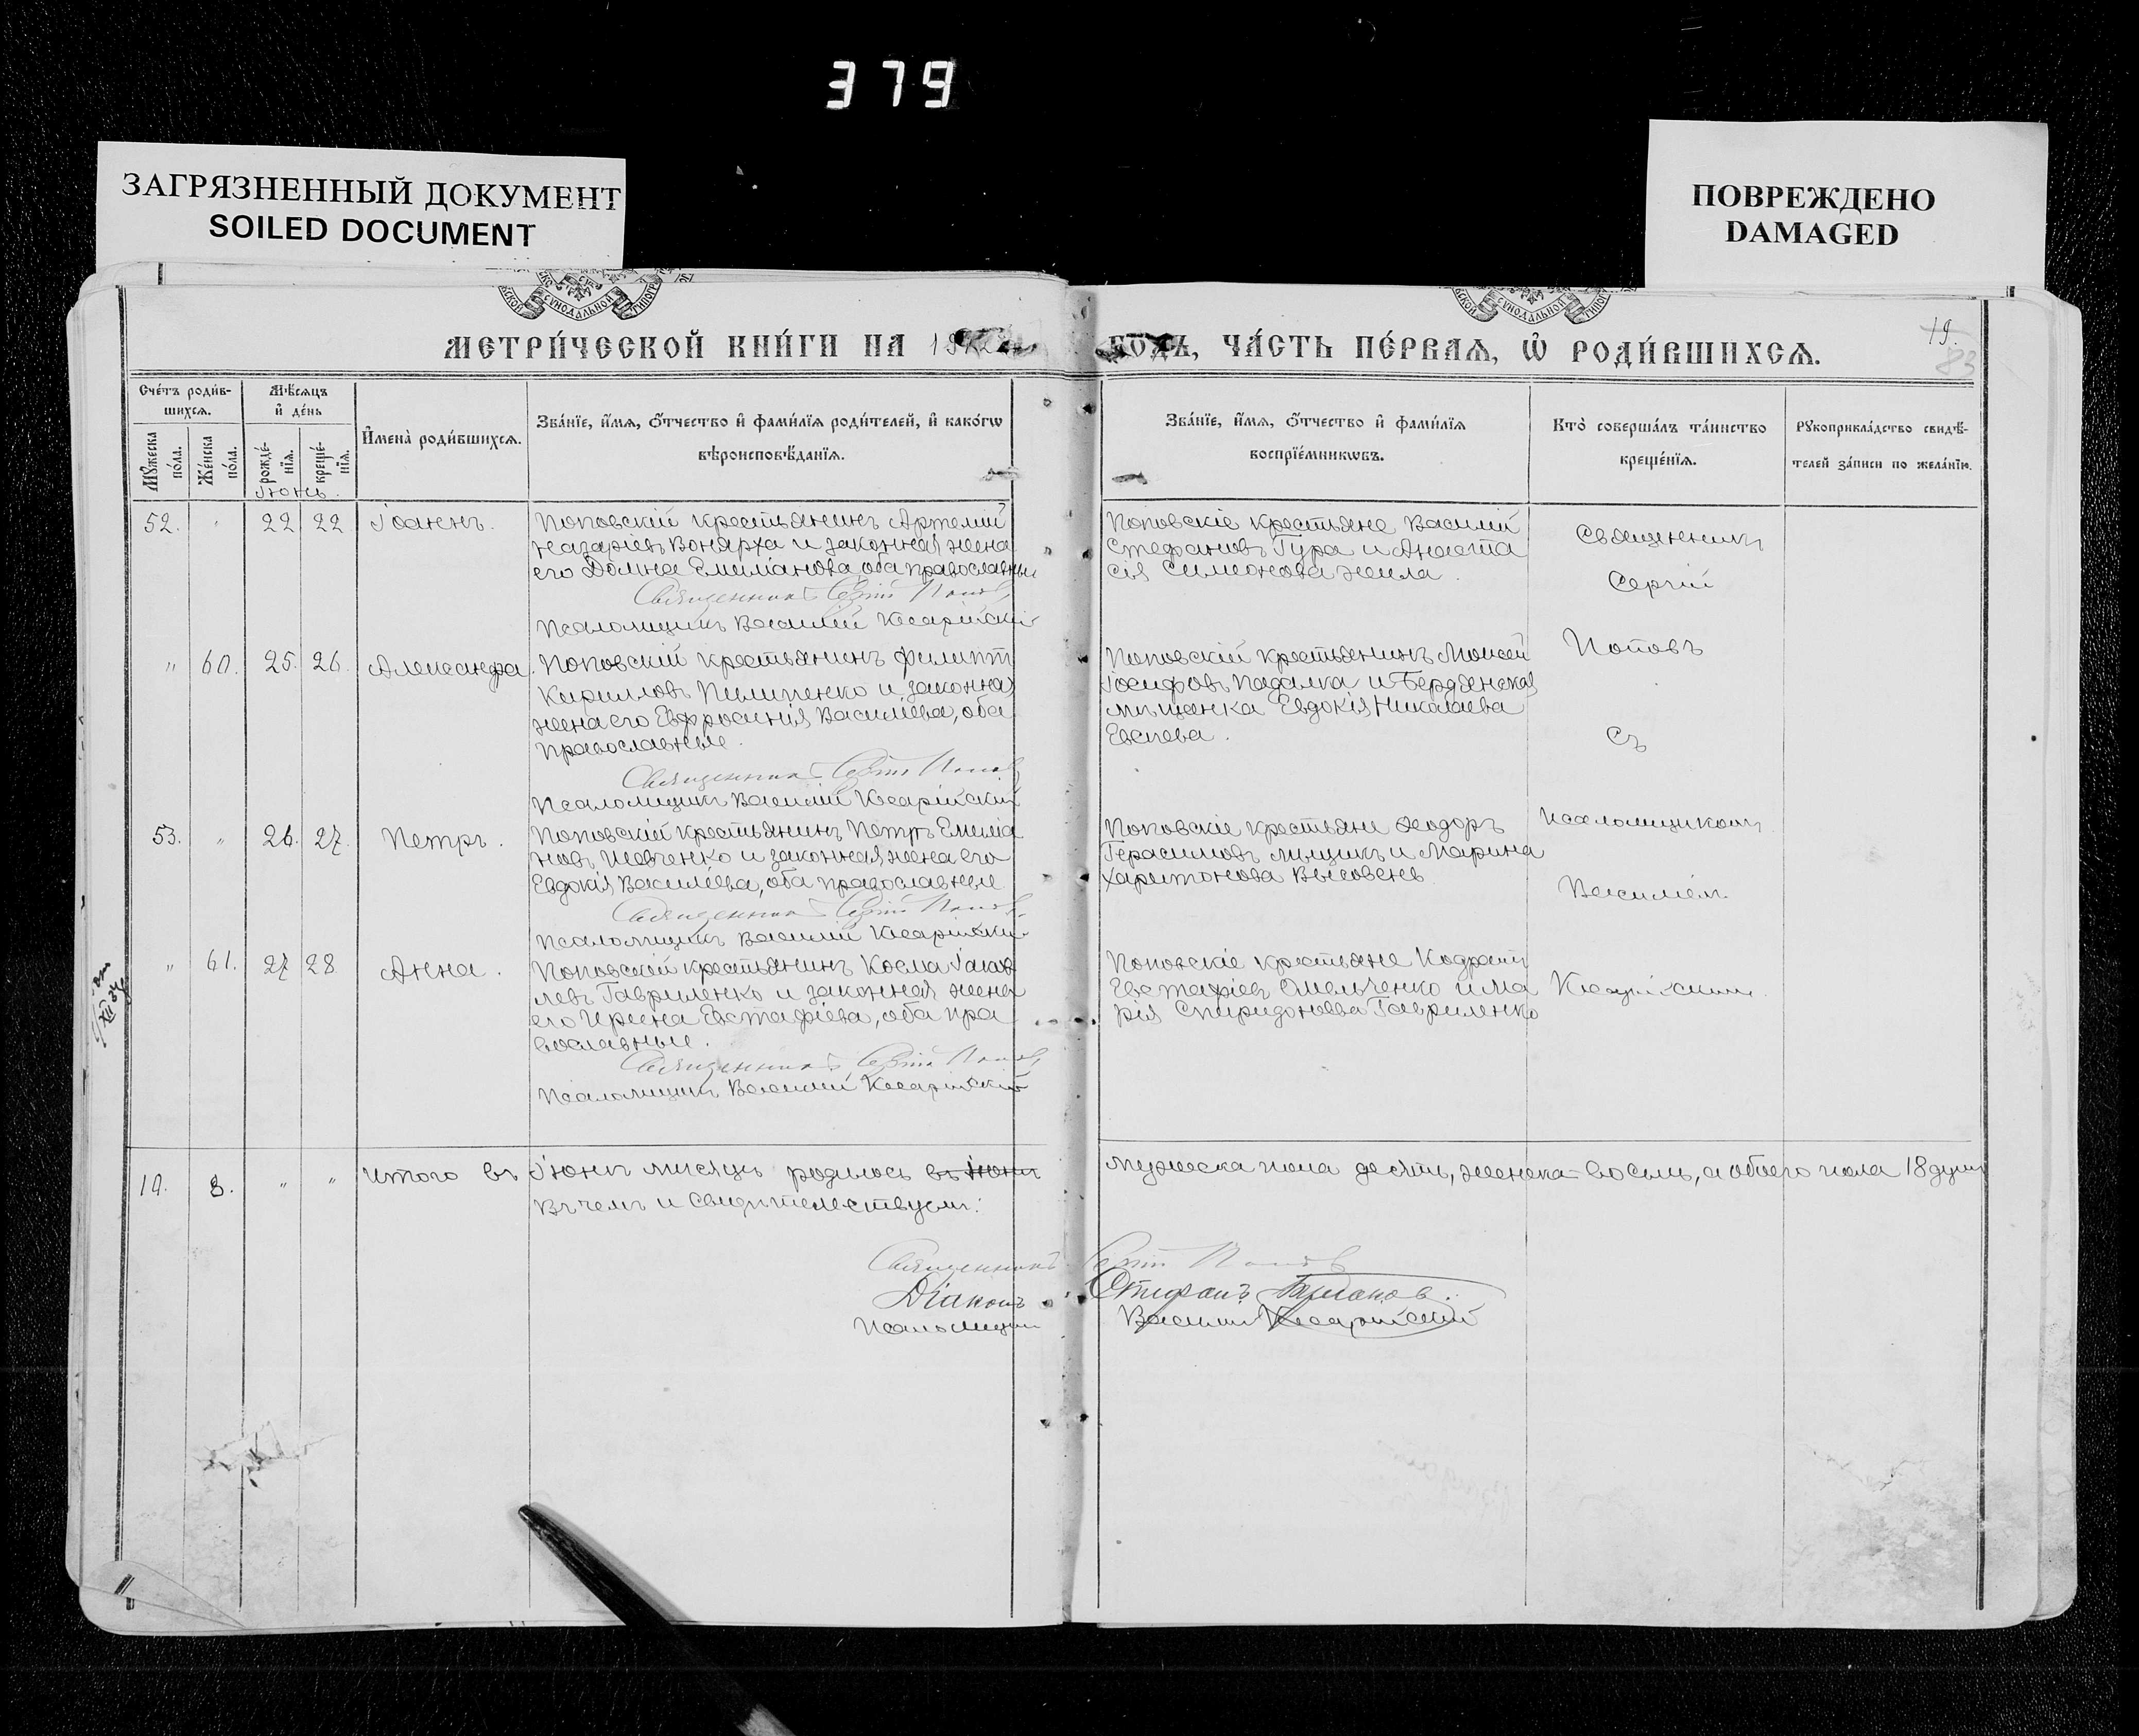 379
ЗАГРЯЗНЕННЫЙ ДОКУМЕНТ
SOILED DOCUMENT
ПОВРЕЖДЕНО
DAMAGED
СѴНОДАЛЬНОЙ
СѴНОДАЛЬНОЙ
МЕТРИ́ЧЕСКОЙ КНИ́ГИ НА 1912 ГОДЪ, ЧА́СТЬ ПЕ́РВАѦ, Ѡ҆ РОДИ́ВШИХСѦ.
19.
83
Сче́тъ роди́в-
шихсѧ.
Мѣ́сѧцъ
и҆ де́нь
Мꙋ́жеска
по́ла.
Же́нска
по́ла.
рожде́-
нїѧ.
креще́-
нїѧ.
И҆мена̀ роди́вшихсѧ.
Зва́нїе, и҆́мѧ, ѻ҆́тчество и҆ фами́лїѧ роди́телей, и҆ како́гѡ
вѣроисповѣ́данїѧ.
Зва́нїе, и҆́мѧ, ѻ҆́тчество и҆ фами́лїѧ
воспрїе́мникѡвъ.
Кто̀ соверша́лъ та́инство
креще́нїѧ.
Рꙋкоприкла́дство свидѣ́-
телей за́писи по жела́нїю.
Іюнь.
52. " 22 22 Іоаннъ.
Поповскій крестьянинъ Артемій
Назаріевъ Вонярха и законная жена
его Домна Емиліанова, оба православные
Священникъ Сергій Поповъ
Псаломщикъ Василій Кесарійскій
Поповскіе крестьяне Василій
Стефановъ Гура и Анаста
сія Симеонова Жила.
" 60. 25. 26. Александра.
Поповскій крестьянинъ Филиппъ
Кирилловъ Пилипенко и законная
жена его Евфросинія Василіева, оба
православные.
Священникъ Сергій Поповъ
Псаломщикъ Василій Кесарійскій
Поповскій крестьянинъ Моисей
Іосифовъ Падалка и Бердянская
мѣщанка Евдокія Николаева
53. " 26. 27. Петръ.
Поповскій крестьянинъ Петръ Емиліа
новъ Шевченко и законная жена его
Евдокія Василіева, оба православные
Священникъ Сергій Поповъ
Псаломщикъ Василій Кесарійскій
Поповскіе крестьяне Ѳеодоръ
Герасимовъ и Марина
Харитонова
" 61. 27 28 Анна.
Поповскій крестьянинъ Косма Іаков
левъ Гавриленко и законная жена
его Ирина Евстафіева, оба пра
вославные.
Священникъ Сергій Поповъ
Псаломщикъ Василій Кесарійскій
Поповскіе крестьяне Кодратъ
Евстафіевъ Омельченко и Ма
рія Спиридонова Гавриленко
Священникъ
Сергій
Поповъ
Съ
псаломщикомъ
Василіемъ
Кесарійскимъ.
10. 8. " " Итого въ Іюнѣ мѣсяцѣ родилось въ Іюнѣ мужеска пола десять, женска – восемь, а обоего пола 18 душъ
Въ чемъ и свидѣтельствуемъ:
Священникъ Сергій Поповъ
Діаконъ Стефанъ
Псаломщикъ Василій Кесарійскій